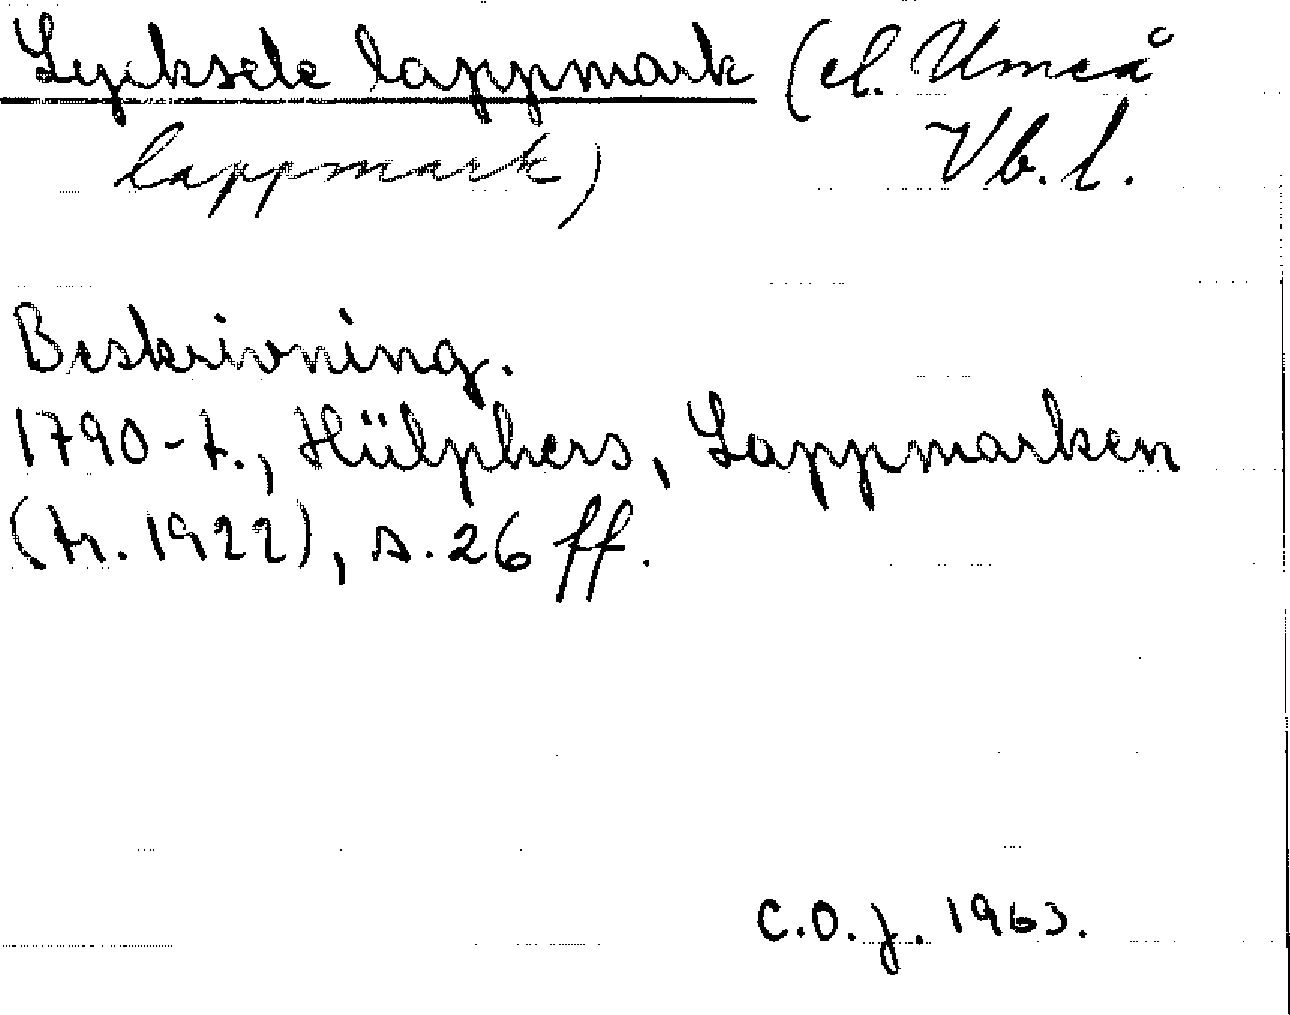 Lycksele lappmark (el. Umeå
lappmark) Vb. l.
Beskrivning.
1790-t., Hülphers, Lappmarken
(tr. 1922), s. 26 ff.
C.O.J. 1963.